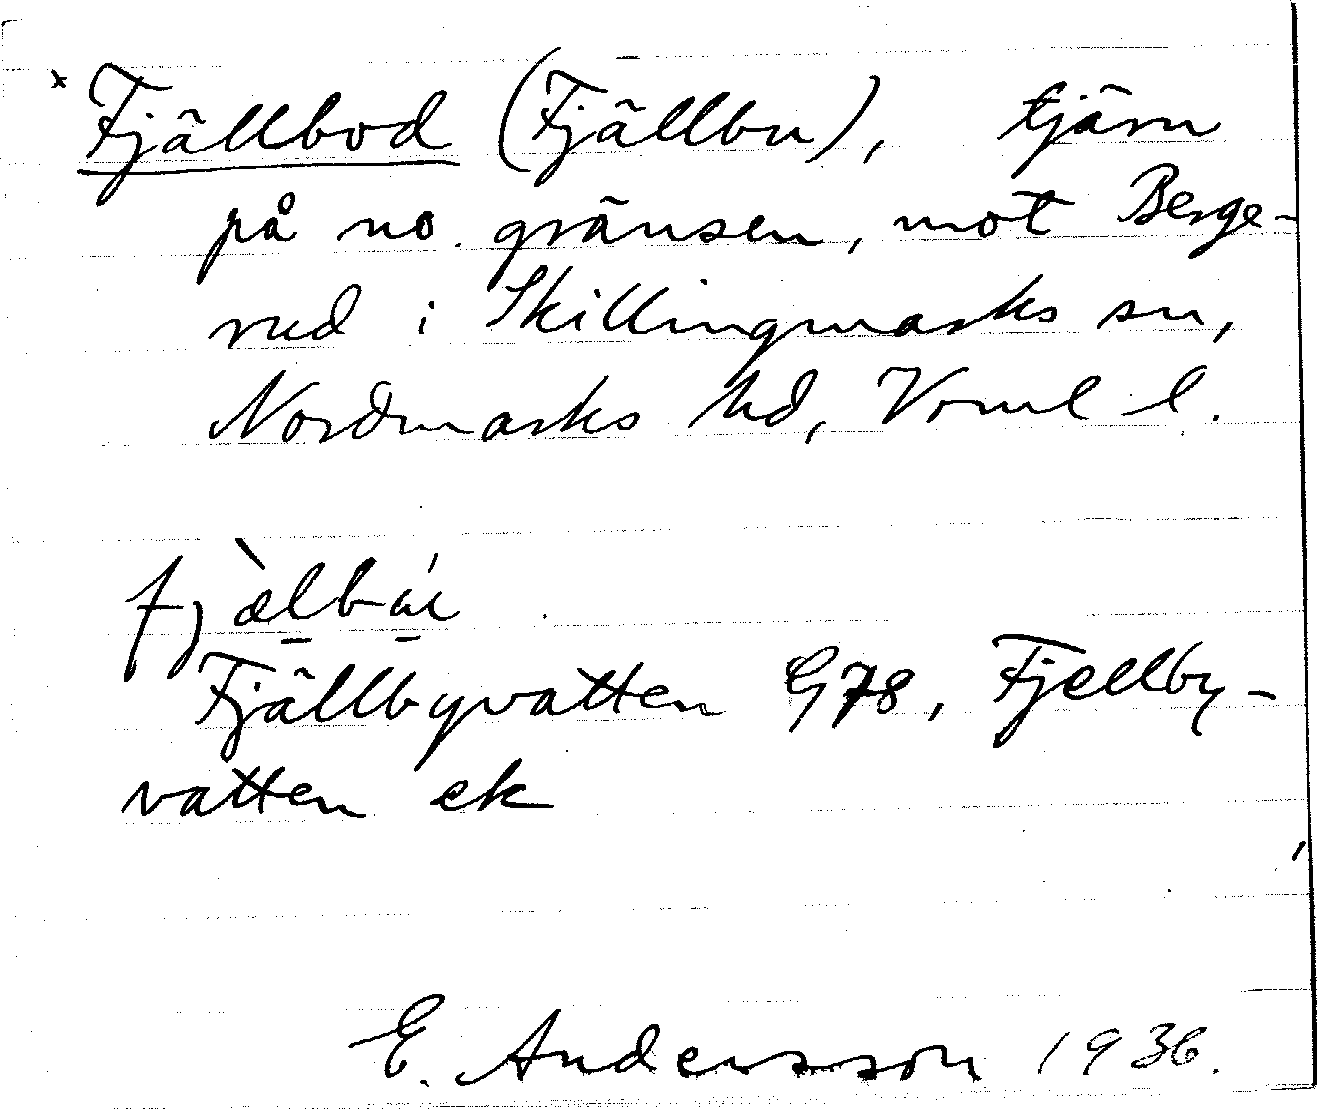 × Fjällbod (Fjällbu), tjärn
på no. gränsen, mot Berge-
rud i Skillingmarks sn,
Nordmarks hd, Vrml l.
Fjällbyvatten G78, Fjellby-
vatten ek
E. Andersson 1936.